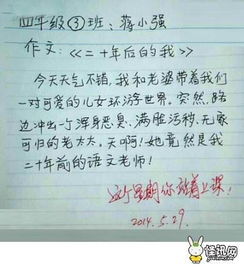 四年级③班：蒋小强
作文：<<二十年后的我>>
今天天气不错，我和老婆带着我们
一对可爱的儿女环游世界。突然，路
边冲出一个浑身恶臭、满脏污秽、无家
可归的老太太。天啊！她竟然是我
二十年前的语文老师！
这个星期你站着上课！
2014.5.29.
怪讯网